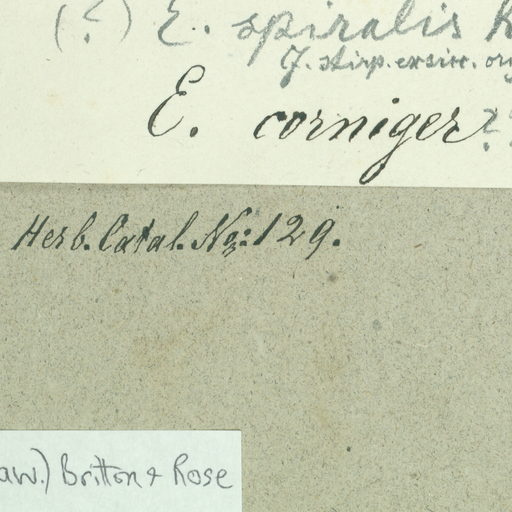 (?) E. spiralis
E. corniger ?
Herb. Catal. No: 129.
aw.) Britton & Rose